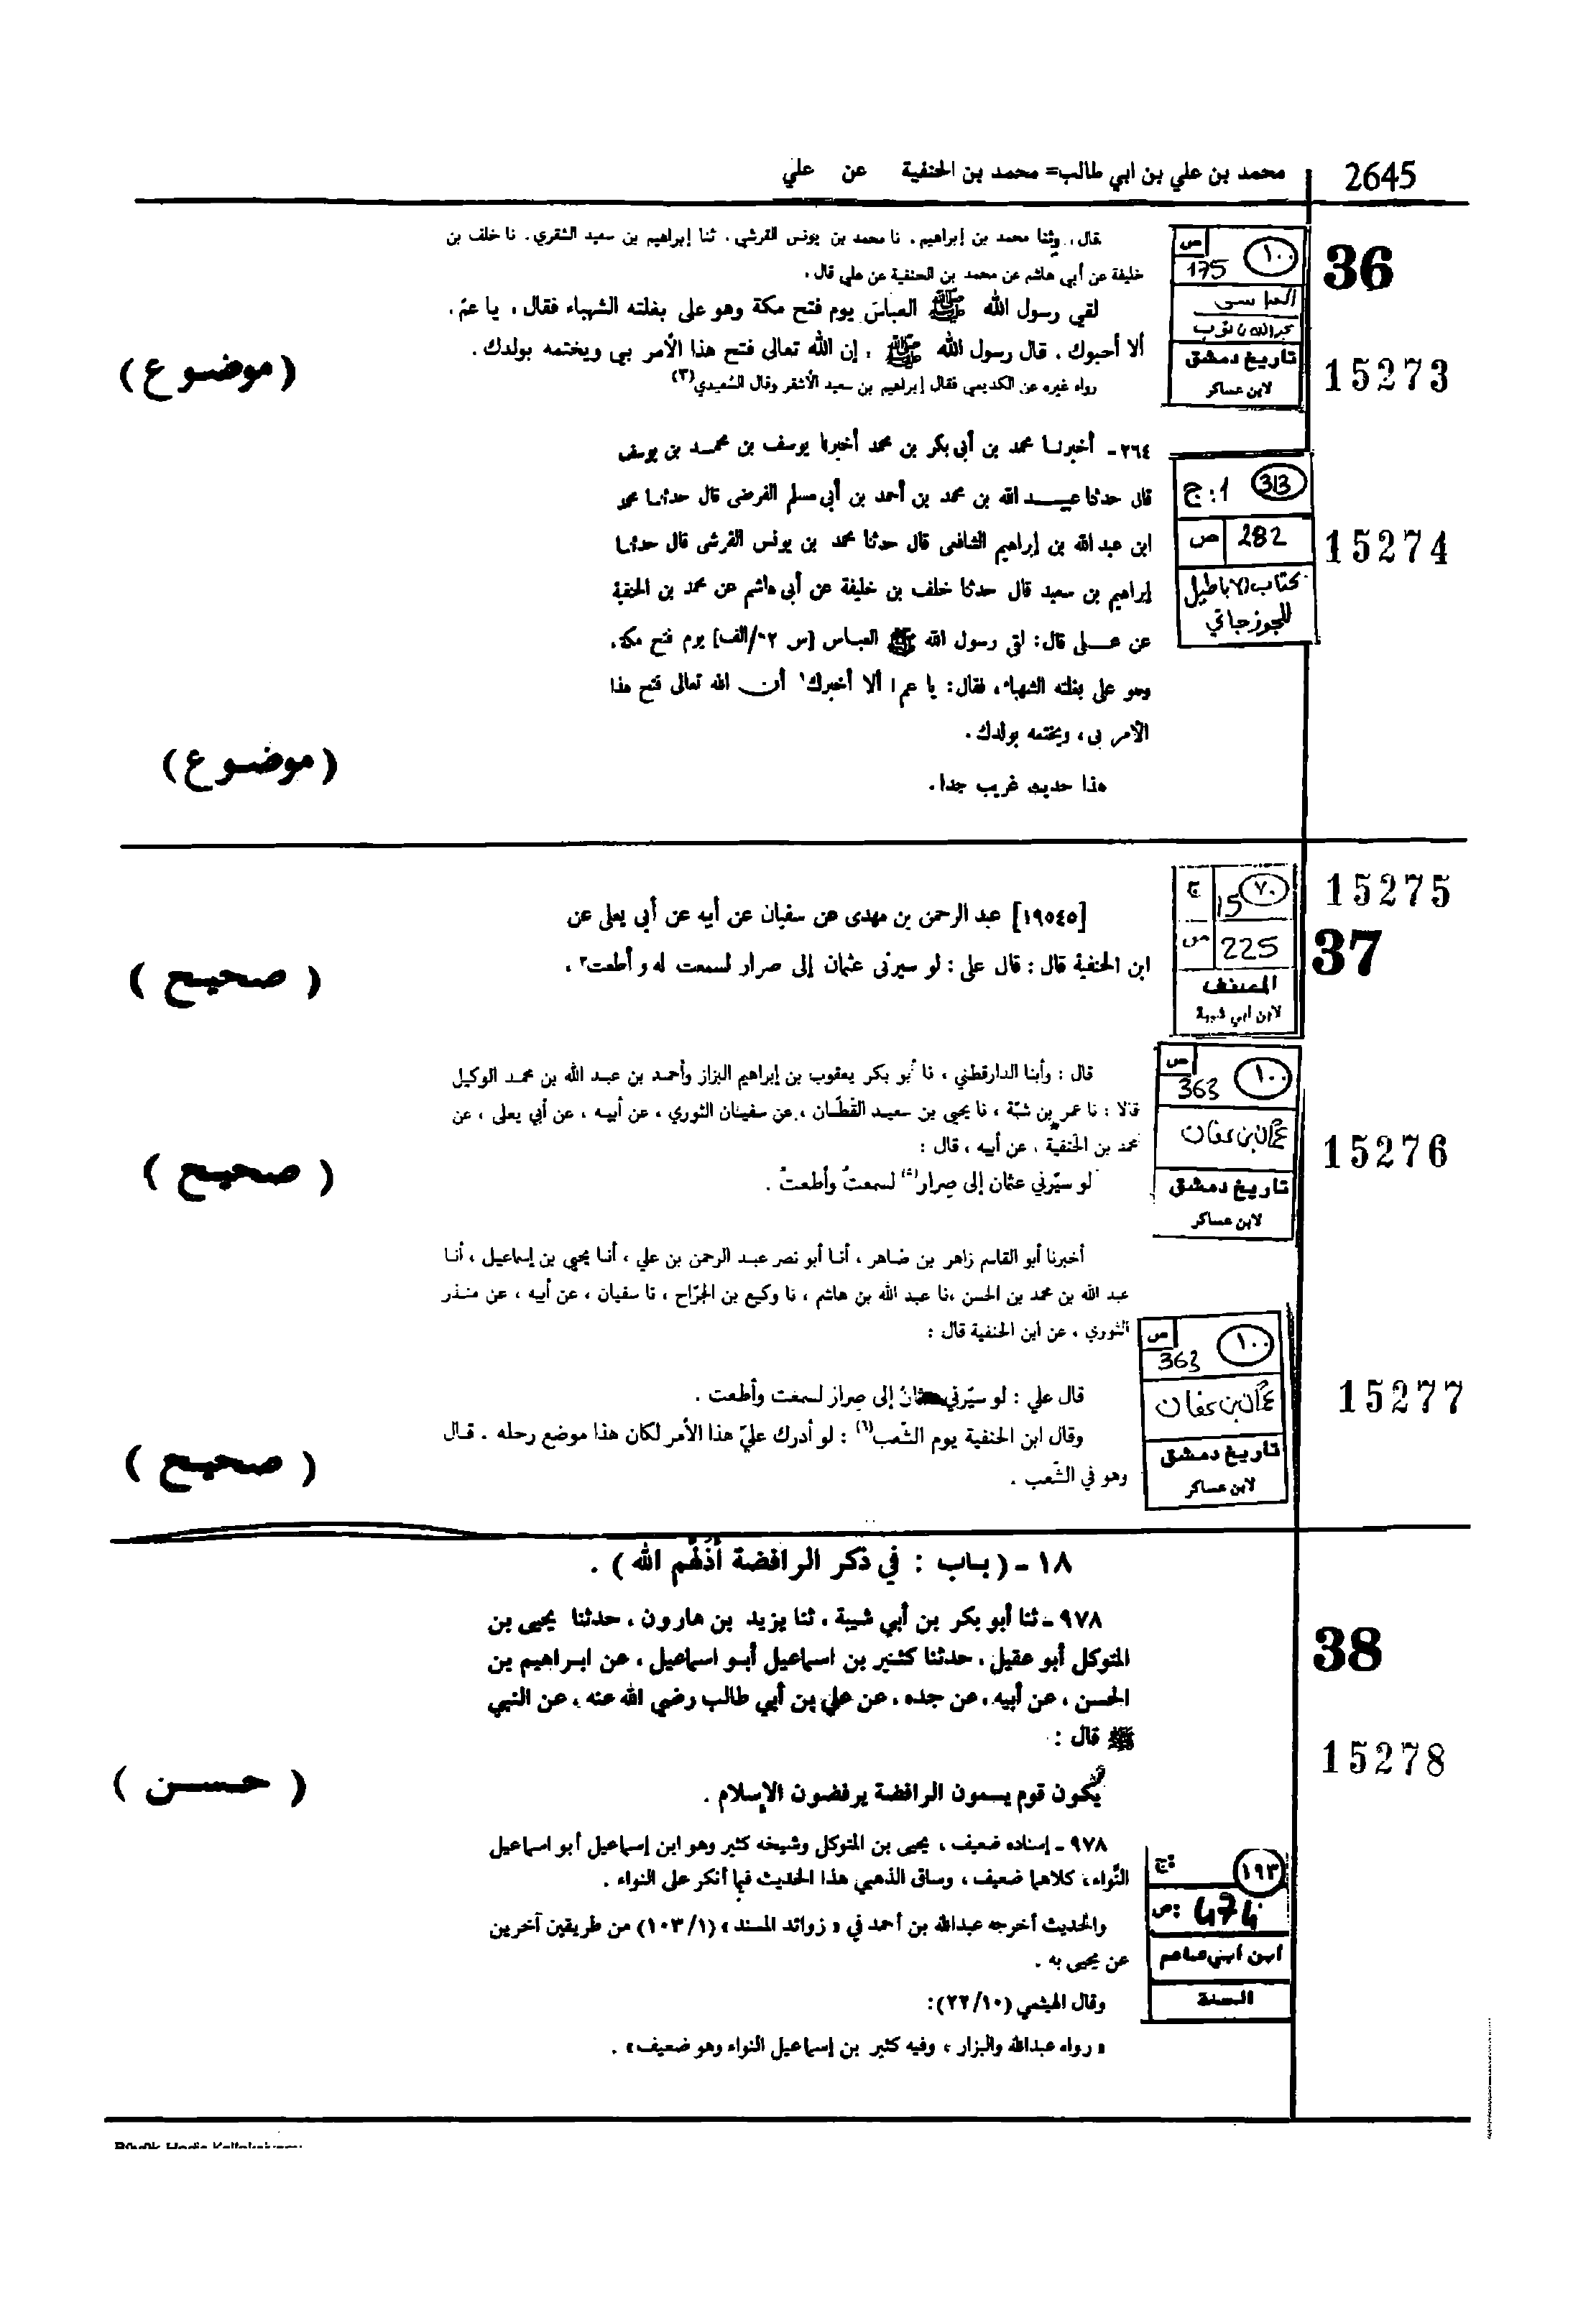 محمد بن علي بن ابي طالب= محمد بن الحنفية عن علي
2645
قال، وثنا محمد بن إبراهيم، نا محمد بن يونس القرشي، ثنا إبراهيم بن سعيد الشقري، نا خلف بن
خليفة عن أبي هاشم عن محمد بن الحنفية عن علي قال،
لقي رسول الله ﷺ العباسَ يوم فتح مكة وهو على بغلته الشهباء فقال، يا عمّ،
ألا أحبوك، قال رسول الله ﷺ، إن الله تعالى فتح هذا الأمر بي ويختمه بولدك.
رواه غيره عن الكديمي فقال إبراهيم بن سعيد الأشقر وقال السُعيدي(٣)
(موضوع)
ص
١٠٠
175
العباسى
تاريخ دمشق
لابن عساكر
36
15273
٢٦٤ـ أخبرنا محمد بن أبي بكر بن محمد أخبرنا يوسف بن محمد بن يوسف
قال حدثنا عبيد الله بن محمد بن أحمد بن أبي مسلم الفرضى قال حدثنا محمد
ابن عبد الله بن إبراهيم الشافعى قال حدثنا محمد بن يونس القرشى قال حدثنا
إبراهيم بن سعيد قال حدثنا خلف بن خليفة عن أبي هاشم عن محمد بن الحنفية
عن على قال: لقى رسول الله ﷺ العباس [س ٠٢/الف] يوم فتح مكة،
وهو على بغلته الشهباء، فقال: يا عم! ألا أخبرك١ أن الله تعالى فتح هذا
الأمر بى، ويختمه بولدك.
هذا حديث غريب جدا.
(موضوع)
313
ج: 1
ص
282
كتاب الاباطيل
للجوزجاني
15274
[١٩٥٤٥] عبد الرحمن بن مهدى عن سفيان عن أبيه عن أبى يعلى عن
ابن الحنفية قال: قال على: لو سيرنى عثمان إلى صرار لسمعت له و أطعت٢.
(صحيح)
ج
٧٠
15
ص
225
المصنف
لابن ابي شيبة
15275
37
قال: وأبنا الدارقطني، نا أبو بكر يعقوب بن إبراهيم البزاز وأحمد بن عبد الله بن محمد الوكيل
قالا: نا عمر بن شبّة، نا يحيى بن سعيد القطّان، عن سفيان الثوري، عن أبيه، عن أبي يعلى، عن
محمد بن الحَنفية، عن أبيه، قال:
لو سيّرني عثمان إلى صِرار(٥) لسمعتُ وأطعتُ.
(صحيح)
ص
١٠٠
363
عثمان بن عفان
تاريخ دمشق
لابن عساكر
15276
أخبرنا أبو القاسم زاهر بن طاهر، أنا أبو نصر عبد الرحمن بن علي، أنا يحيى بن إسماعيل، أنا
عبد الله بن محمد بن الحسن، نا عبد الله بن هاشم، نا وكيع بن الجَرّاح، نا سفيان، عن أبيه، عن منذر
الثوري، عن ابن الحنفية قال:
قال علي: لو سيّرني عثمانُ إلى صِرار لسمعت وأطعت.
وقال ابن الحنفية يوم الشّعب(٦): لو أدرك عليّ هذا الأمر لكان هذا موضع رحله. قال
وهو في الشّعب.
(صحيح)
ص
١٠٠
363
عثمان بن عفان
تاريخ دمشق
لابن عساكر
15277
١٨ ـ (باب: في ذكر الرافضة أذلهم الله).
٩٧٨ـ ثنا أبو بكر بن أبي شيبة، ثنا يزيد بن هارون، حدثنا يحيى بن
المتوكل أبو عقيل، حدثنا كثير بن اسماعيل أبو اسماعيل، عن ابراهيم بن
الحسن، عن أبيه، عن جده، عن علي بن أبي طالب رضي الله عنه، عن النبي
ﷺ قال:
يكون قوم يسمون الرافضة يرفضون الإسلام.
(حسن)
38
15278
٩٧٨ـ إسناده ضعيف، يحيى بن المتوكل وشيخه كثير وهو ابن إسماعيل أبو اسماعيل
النّواء، كلاهما ضعيف، وساق الذهبي هذا الحديث فيما أنكر على النواء.
والحديث أخرجه عبدالله بن أحمد في «زوائد المسند» (١٠٣/١) من طريقين آخرين
عن يحيى به.
وقال الهيثمي (٢٢/١٠):
«رواه عبدالله والبزار، وفيه كثير بن إسماعيل النواء وهو ضعيف».
ج:
١٩٣
ص:
474
ابن أبي عاصم
السنة